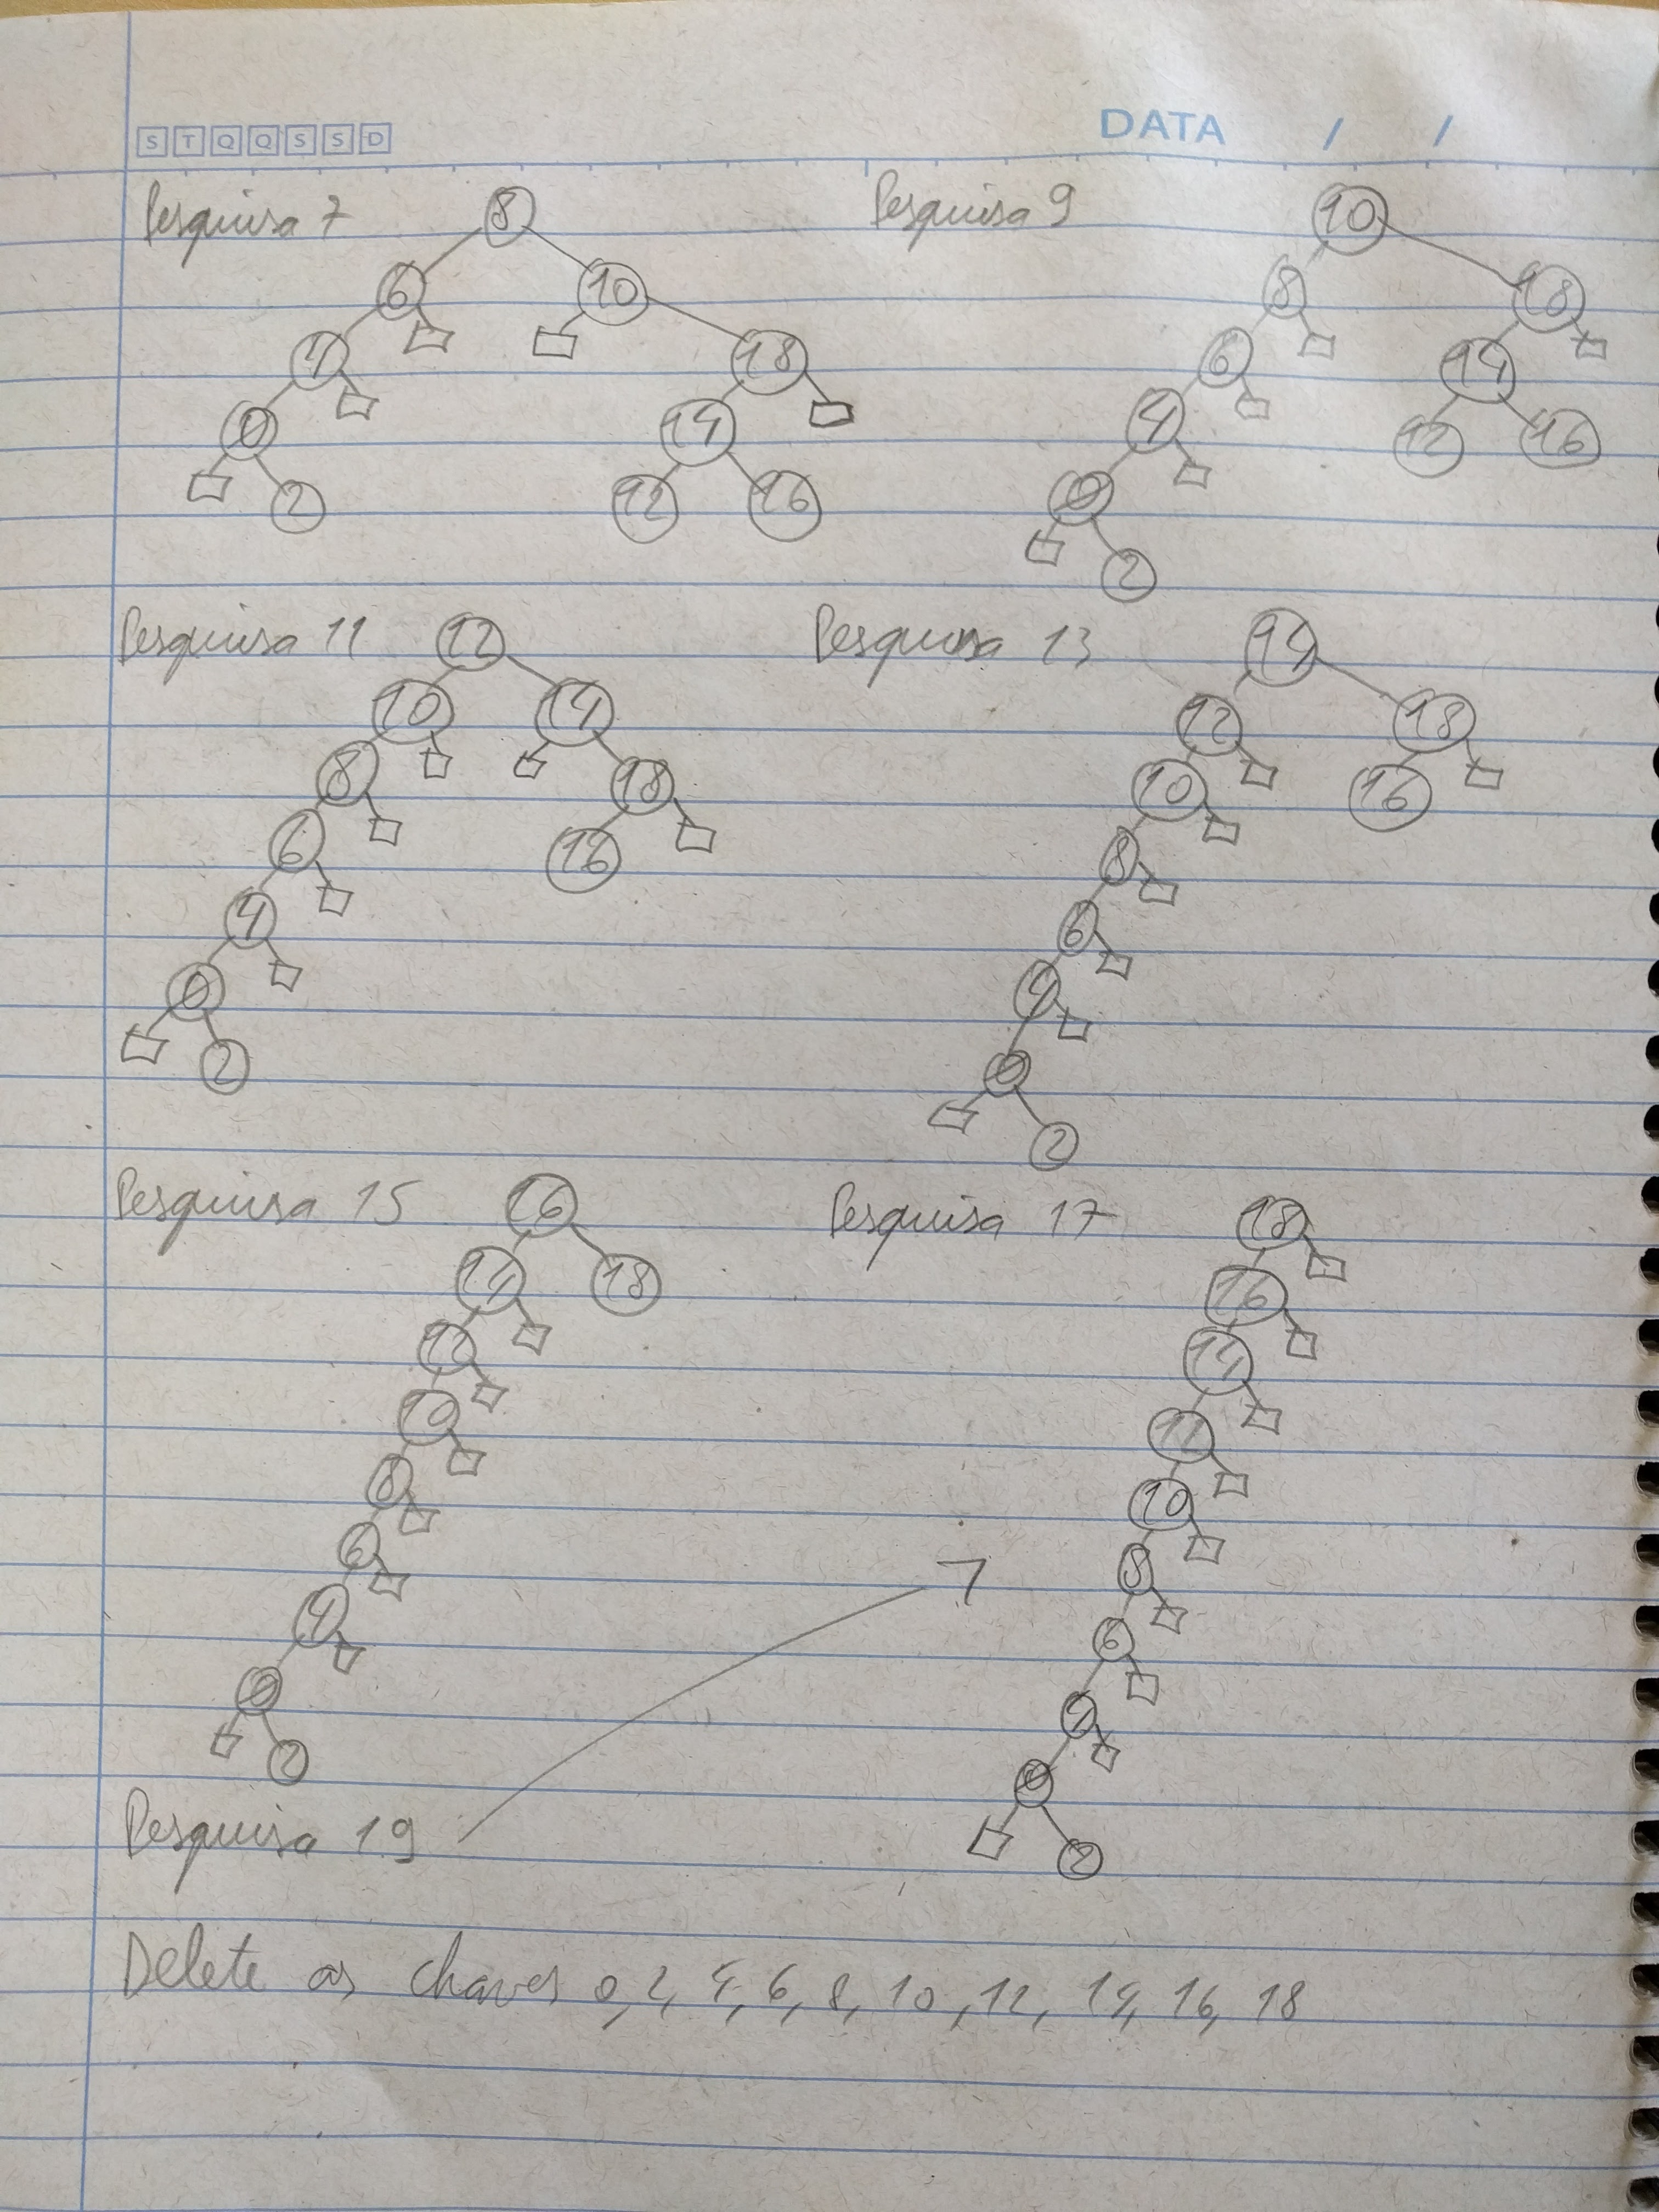 S T Q Q S S D DATA / /
Pesquisa 7
8
6 10
4 18
0 14
2 12 16
Pesquisa 9
10
8 18
6 14
4 12 16
0
2
Pesquisa 11
12
10 14
8 18
6 16
4
0
2
Pesquisa 13
14
12 18
10 16
8
6
4
0
2
Pesquisa 15
16
14 18
12
10
8
6
4
0
2
Pesquisa 17
18
16
14
12
10
8
6
4
0
2
Pesquisa 19
Delete as chaves 0, 2, 4, 6, 8, 10, 12, 14, 16, 18